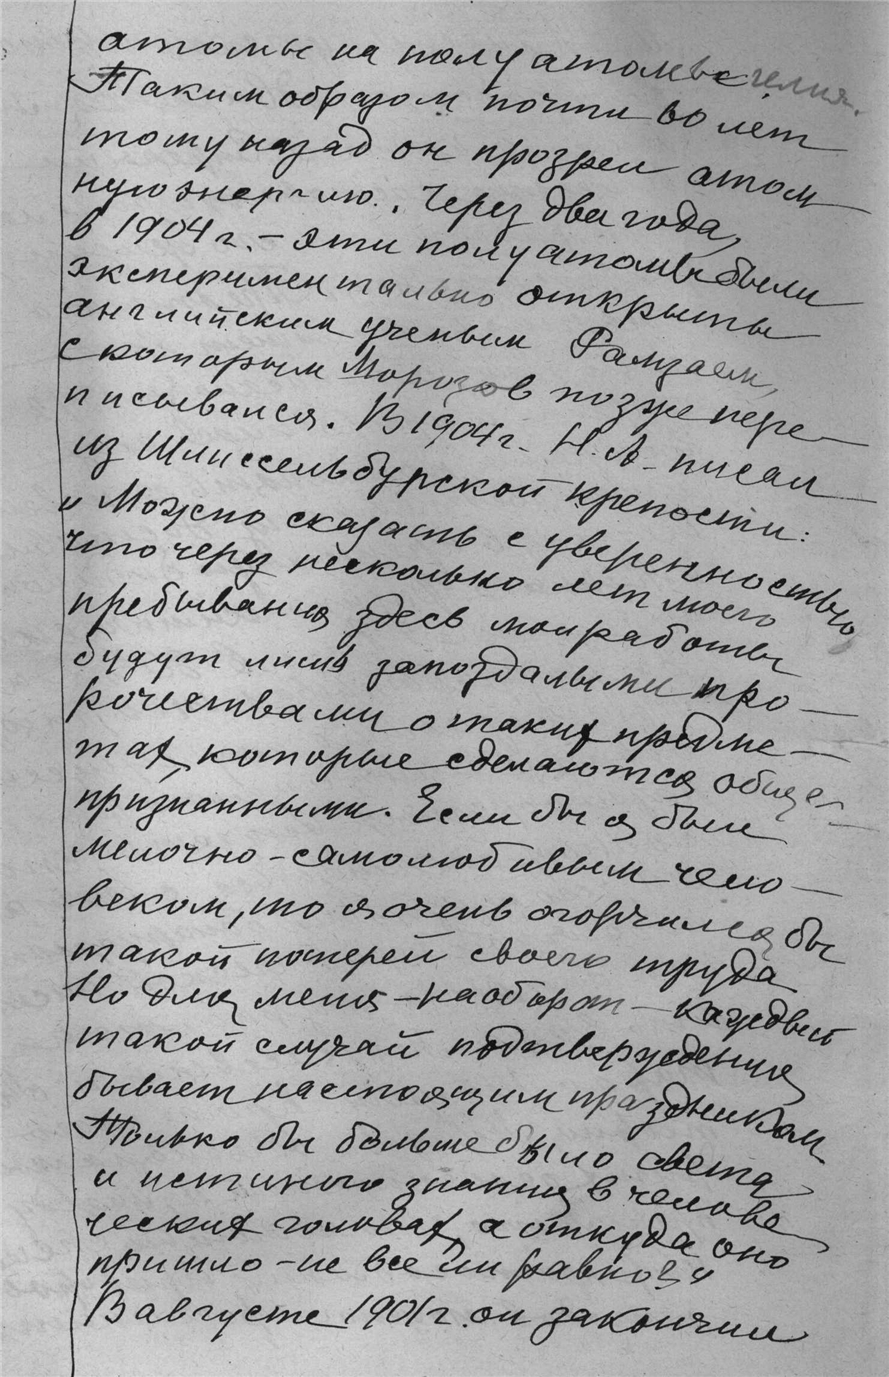 атомы на полуатомы гелия.
Таким образом почти 60 лет
тому назад он прозрел атом
ную энергию. Через два года,
в 1904 г. – эти полуатомы были
экспериментально открыты
английским ученым Рамзаем,
с которым Морозов позже пере–
писывался. В 1904 г. Н.А. писал
из Шлиссельбурской крепости:
"Можно сказать с уверенностью,
что через несколько лет моего
пребывания здесь мои работы
будут лишь запоздалыми про–
рочествами о таких предме–
тах, которые сделаются обще–
признанными. Если бы я был
мелочно-самолюбивым чело–
веком, то я очень огорчился бы
такой потерей своего труда
Но для меня – наоборот – каждый
такой случай подтверждения
бывает настоящим праздником
Только бы больше было света
и истиного знания в челове
ческих головах, а откуда оно
пришло – не все ли равно?"
В августе 1901 г. он закончил